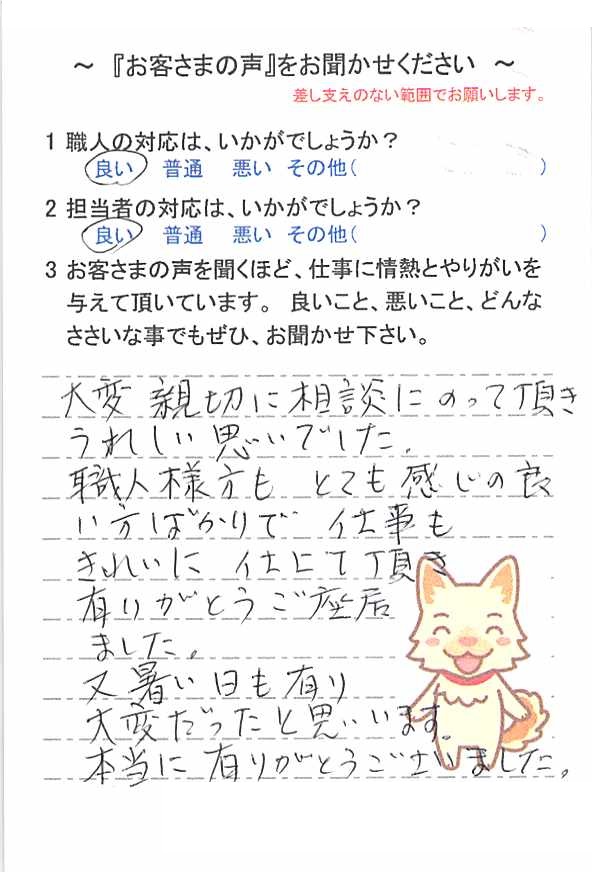 ～『お客さまの声』をお聞かせください ～
差し支えのない範囲でお願いします。
1 職人の対応は、いかがでしょうか？
良い 普通 悪い その他( )
2 担当者の対応は、いかがでしょうか？
良い 普通 悪い その他( )
3 お客さまの声を聞くほど、仕事に情熱とやりがいを
与えて頂いています。 良いこと、悪いこと、どんな
ささいな事でもぜひ、お聞かせ下さい。
大変 親切に相談にのって頂き
うれしい思いでした。
職人様方も とても感じの良
い方ばかりで 仕事も
きれいに 仕上て頂き
有りがとうご座居
ました。
又暑い日も有り
大変だったと思いいます。
本当に有りがとうございました。